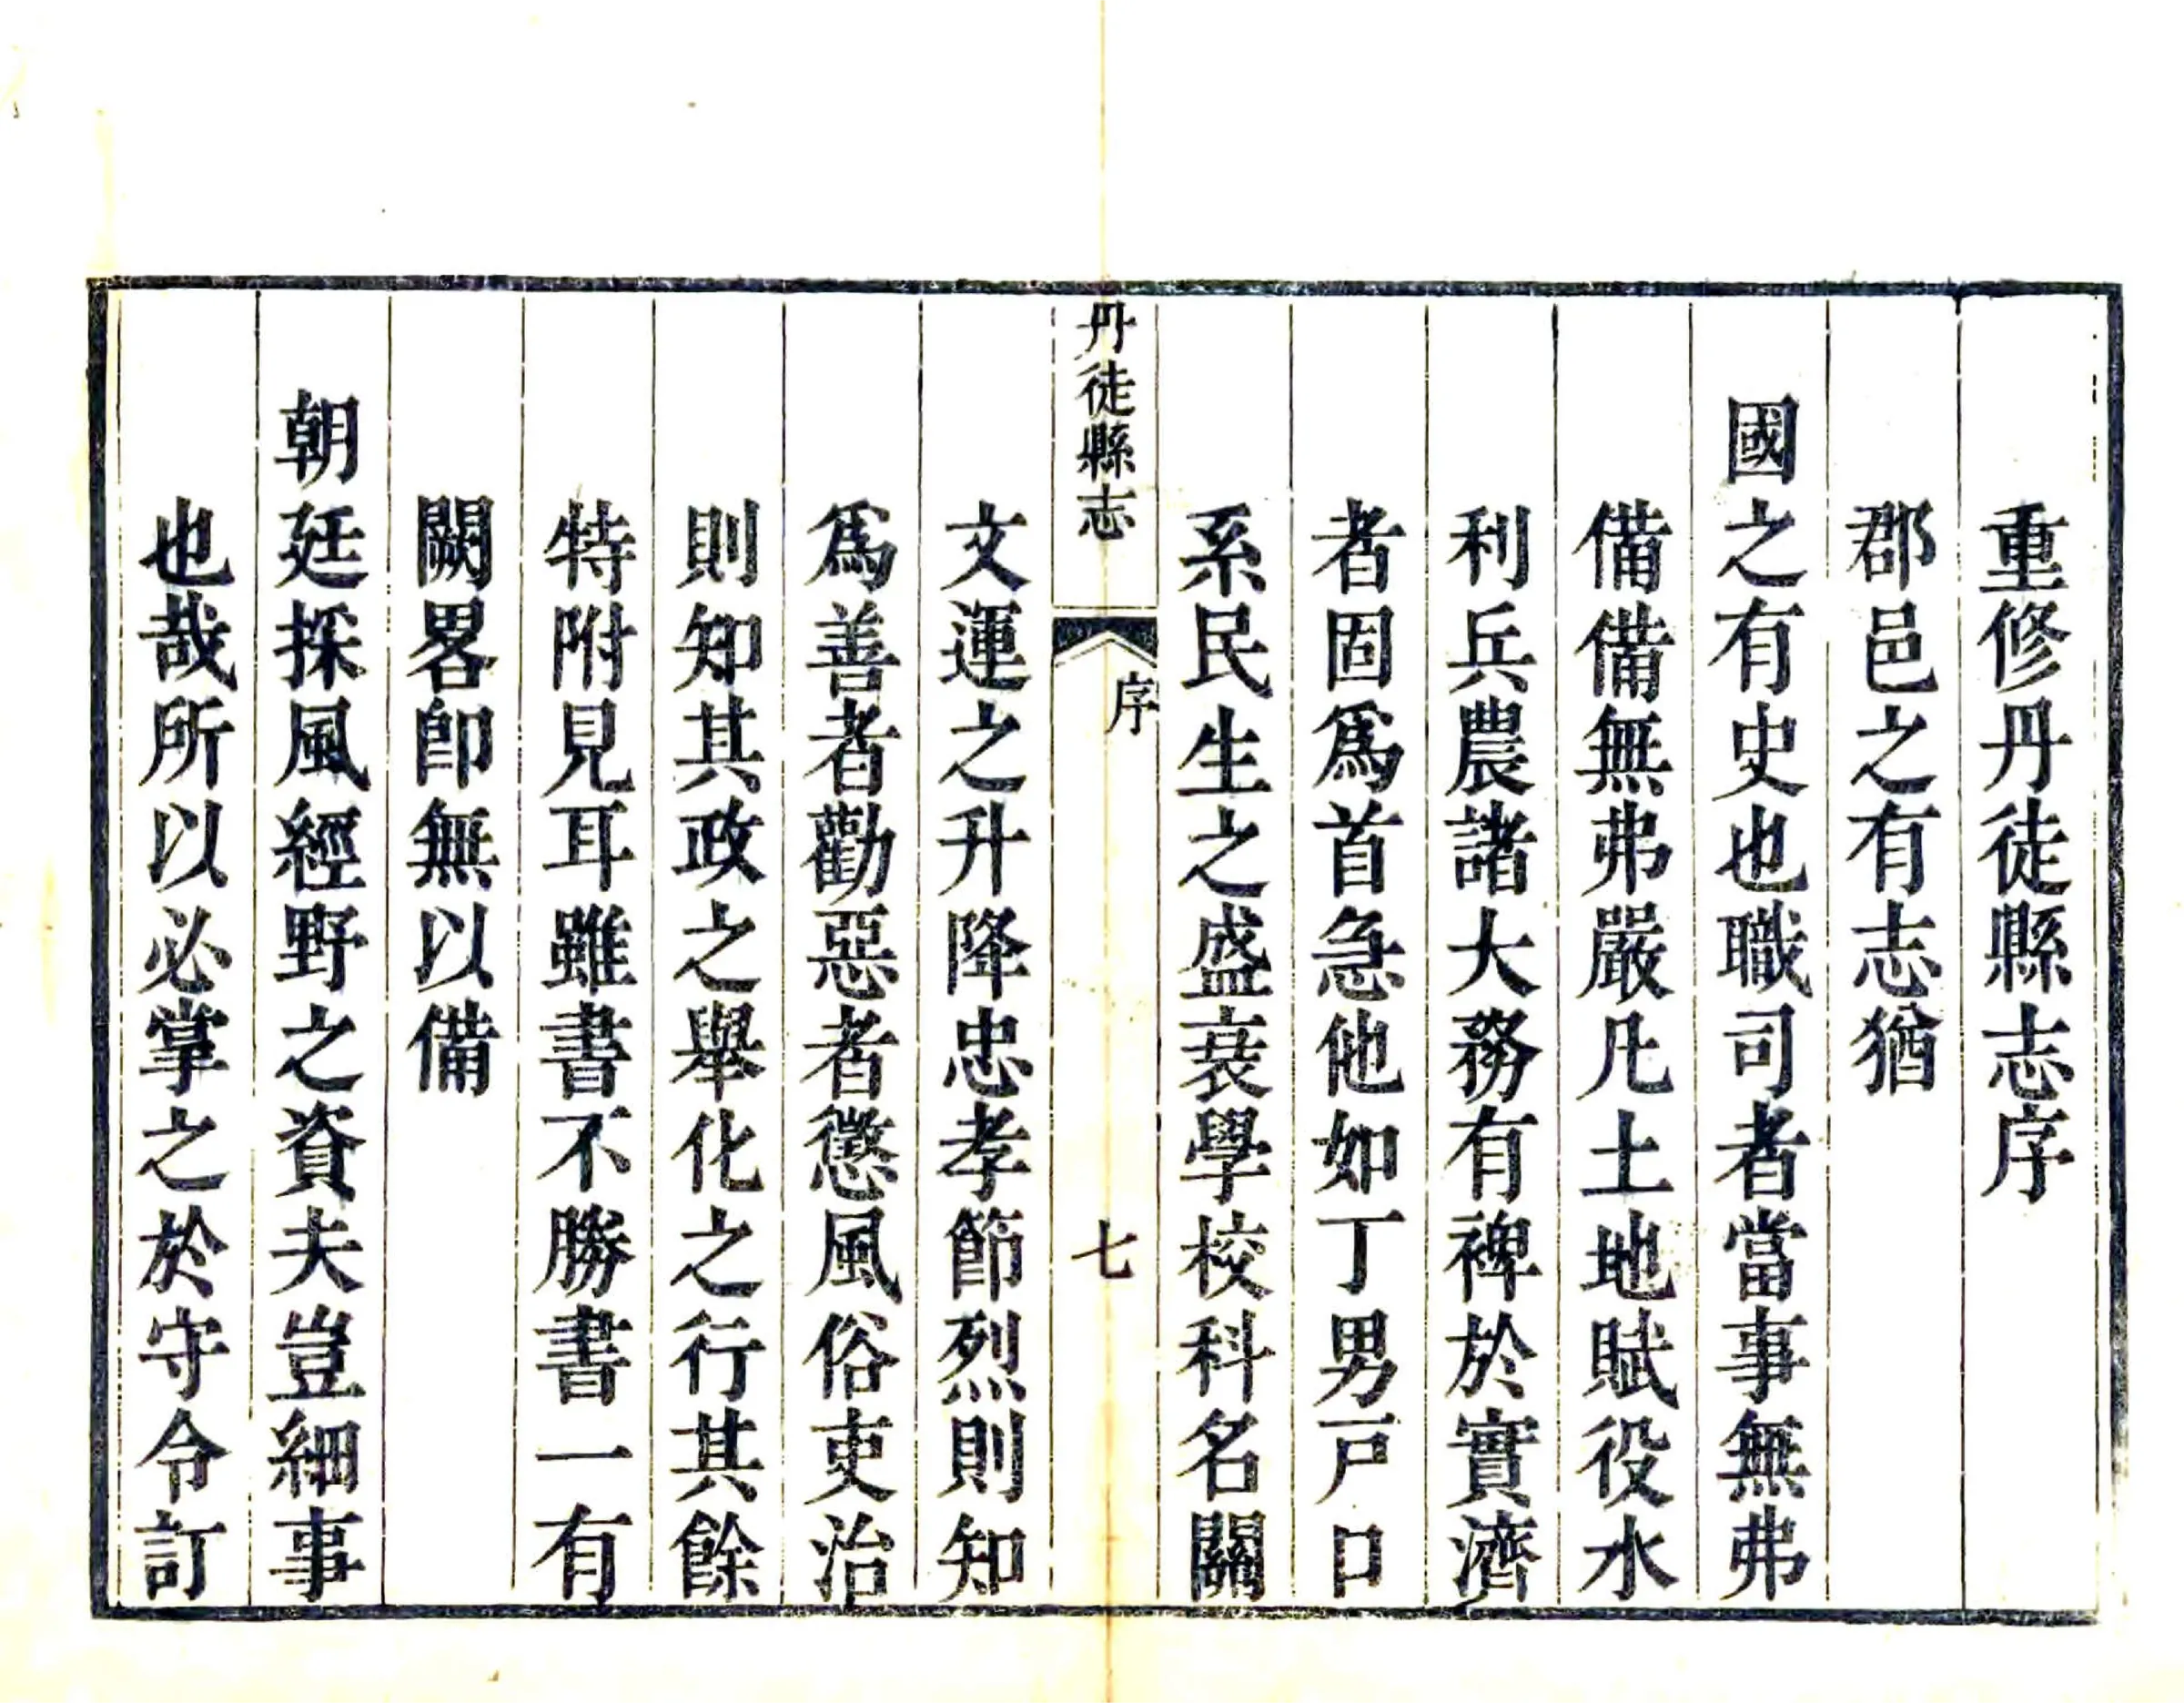 重修丹徒縣志序
郡邑之有志猶
國之有史也職司者當事無弗
備備無弗嚴凡土地賦役水
利兵農諸大務有裨於實濟
者固爲首急他如丁男戸口
系民生之盛衰學校科名關
丹徒縣志
序
七
文運之升降忠孝節烈則知
爲善者勸惡者懲風俗吏治
則知其政之舉化之行其餘
特附見耳雖書不勝書一有
闕畧卽無以備
朝廷採風經野之資夫豈細事
也哉所以必掌之於守令訂